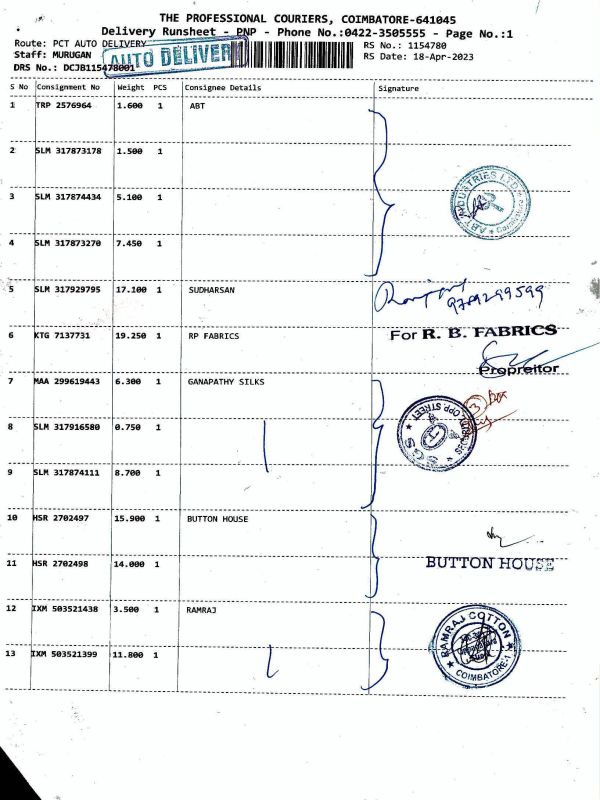 THE PROFESSIONAL COURIERS, COIMBATORE-641045
Delivery Runsheet - PNP - Phone No.:0422-3505555 - Page No.:1
Route: PCT AUTO DELIVERY
RS No.: 1154780
Staff: MURUGAN
AUTO DELIVERY
RS Date: 18-Apr-2023
DRS No.: DCJB115478001
S No Consignment No Weight PCS Consignee Details Signature
1 TRP 2576964 1.600 1 ABT
2 SLM 317873178 1.500 1
3 SLM 317874434 5.100 1
ABT INDUSTRIES LTD
4 SLM 317873270 7.450 1
5 SLM 317929795 17.100 1 SUDHARSAN
9789299599
6 KTG 7137731 19.250 1 RP FABRICS
For R. B. FABRICS
Propreitor
7 MAA 299619443 6.300 1 GANAPATHY SILKS
3 Box
8 SLM 317916580 0.750 1
SGS SECURITY OPP STREET
9 SLM 317874111 8.700 1
10 HSR 2702497 15.900 1 BUTTON HOUSE
11 HSR 2702498 14.000 1
BUTTON HOUSE
12 IXM 503521438 3.500 1 RAMRAJ
RAMRAJ COTTON
COIMBATORE-1
13 IXM 503521399 11.800 1